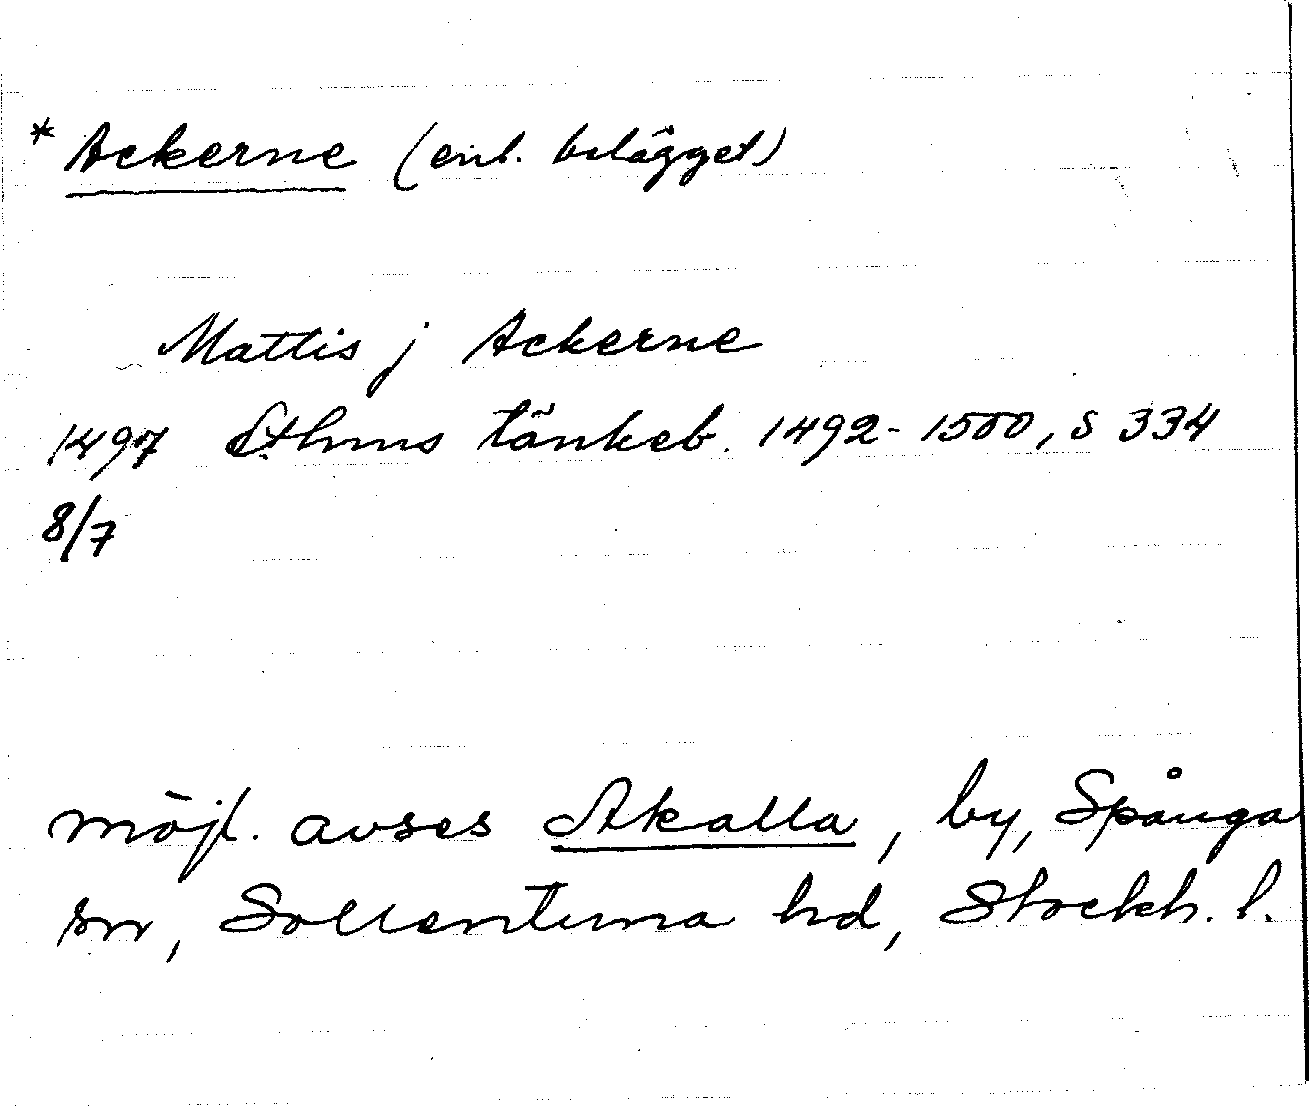 * Ackerne (enl. belägget)
Mattis j Ackerne
1497 Sthms tänkeb. 1492-1500, s 334
8/7
möjl. avses Akalla, by, Spånga
sn, Sollentuna hd, Stockh. l.